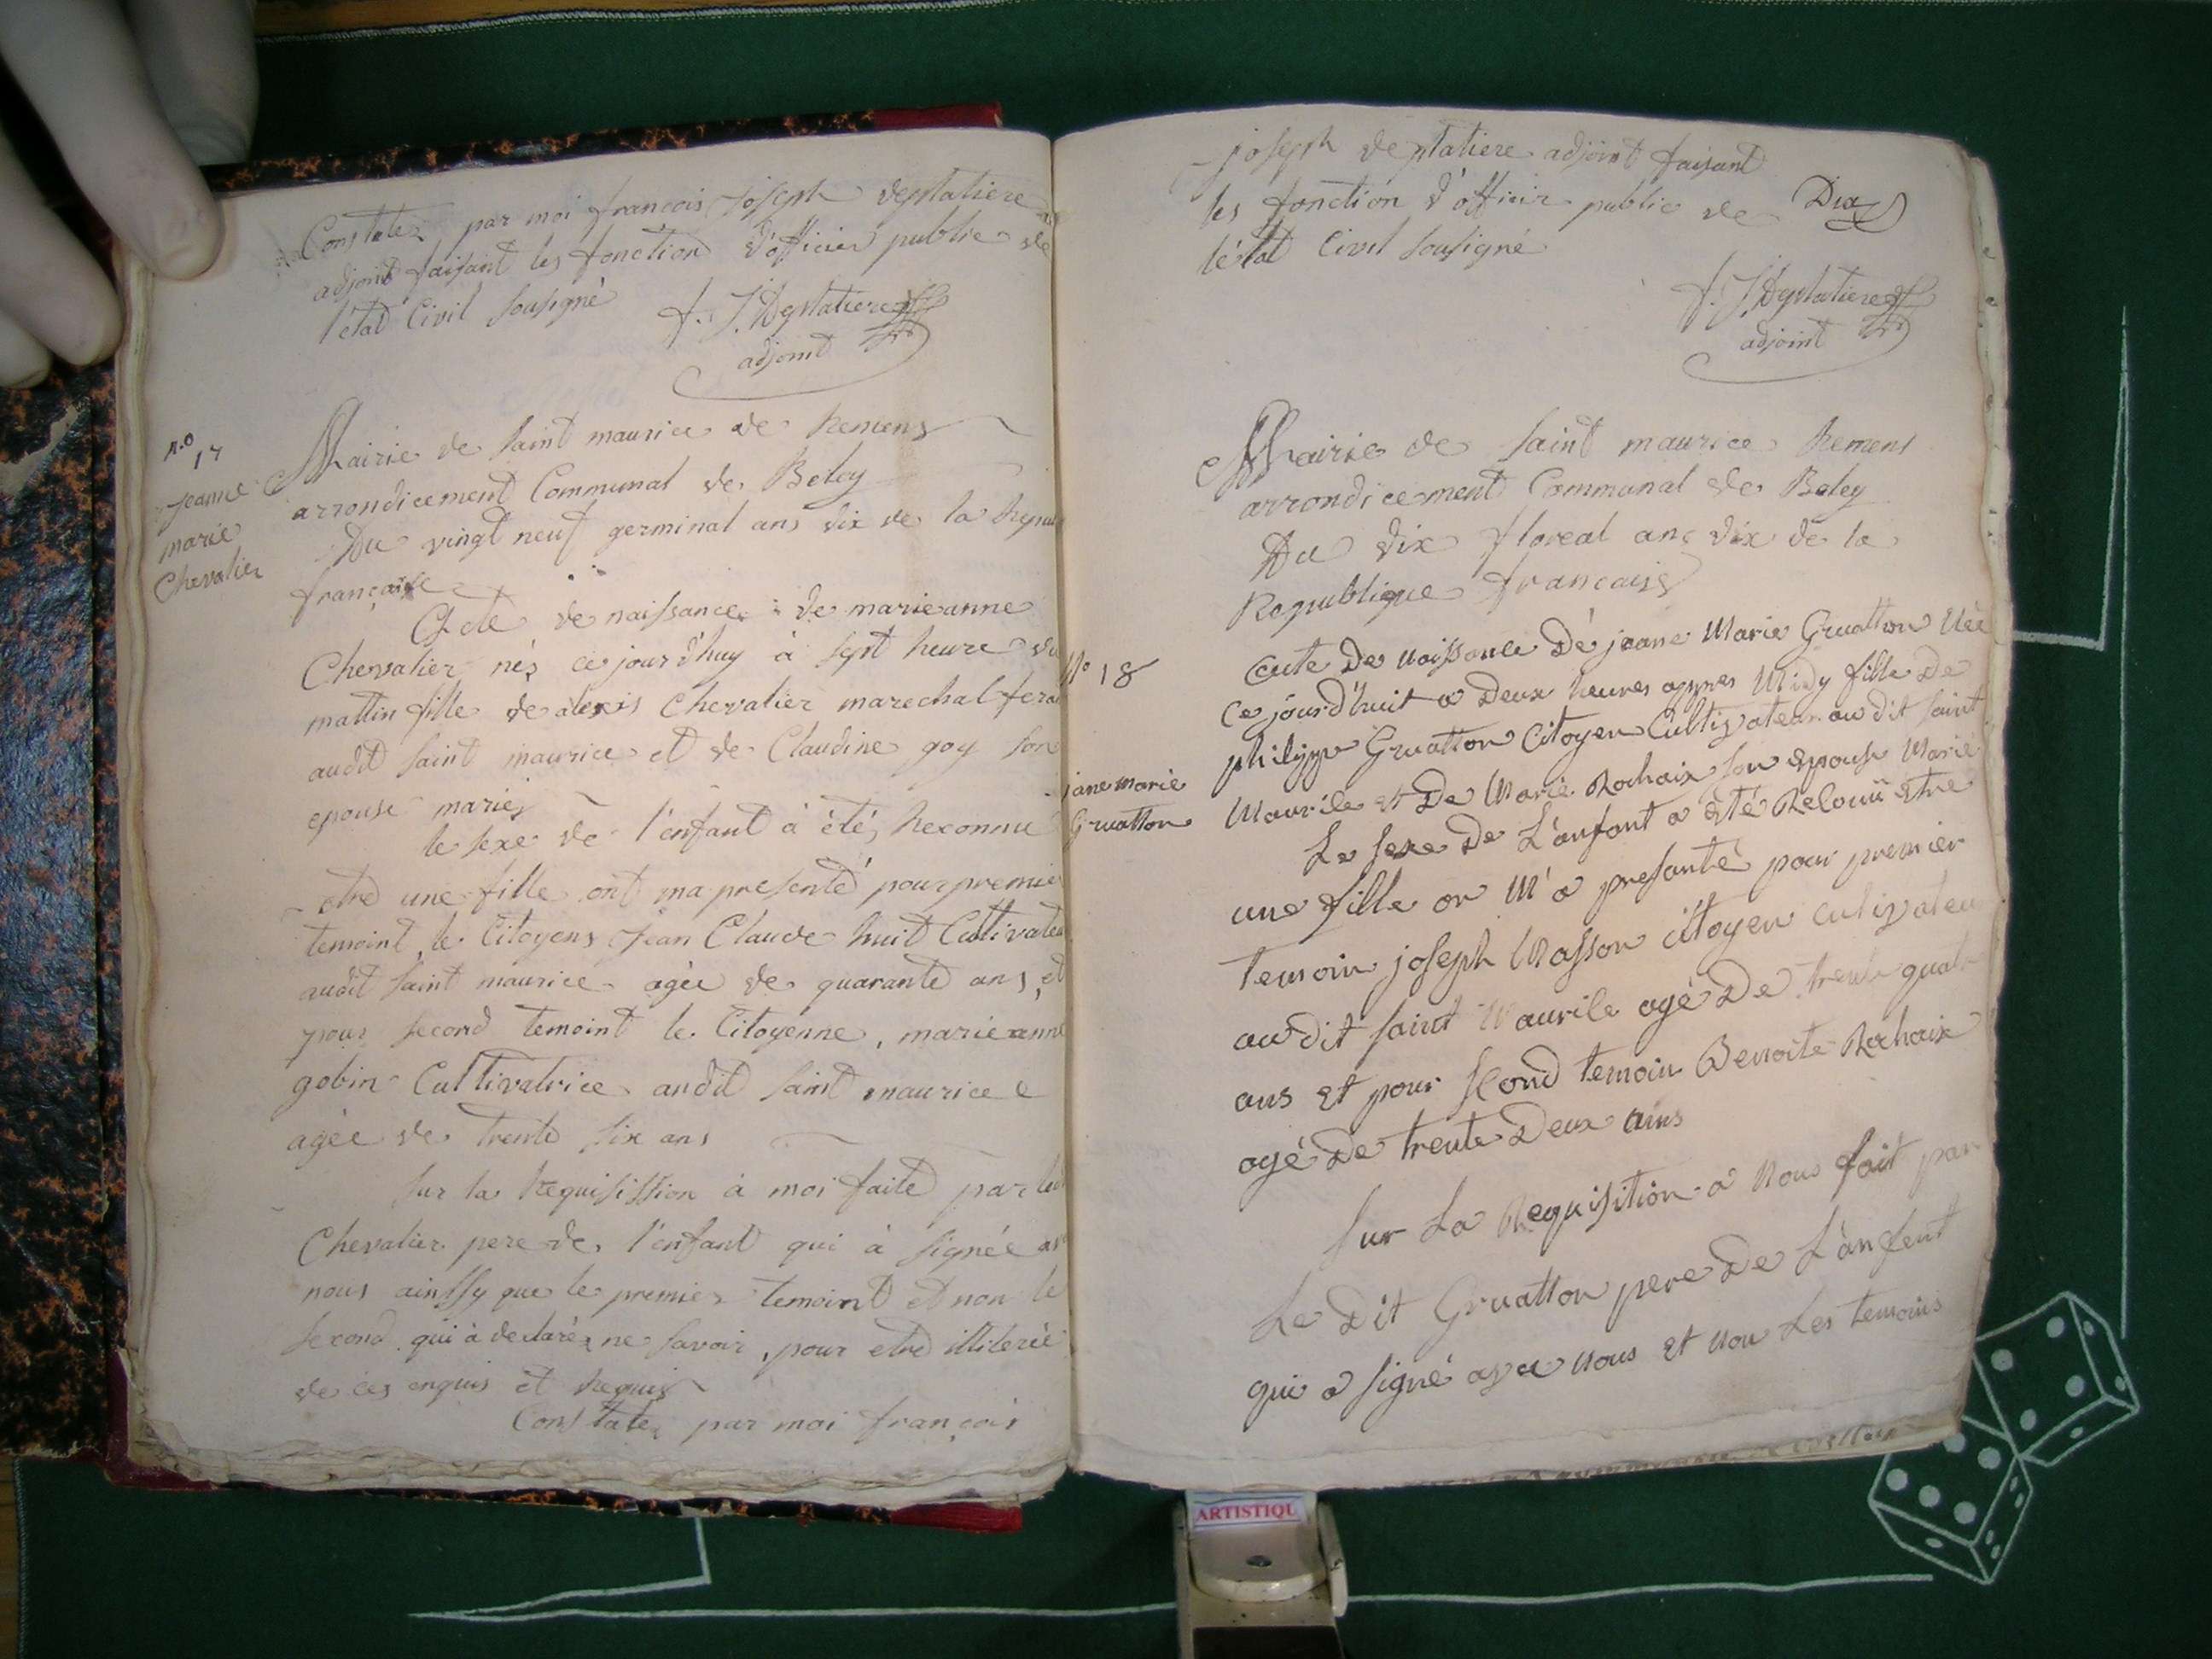 Constatez par moi francois joseph deplatiere
adjoint faisant les fonction d'officier public de
l'état Civil sousigné
f. J. Deplatiere
adjoint
N.o
17
jeanne
marie
Chevalier
Mairie de saint maurice de Remens
arrondicement Communal de Beley
Du vingt neuf germinal ans dix de la Repu
française
Acte de naissance de marie anne
Chevalier nés ce jour d'huy à sept heure du
mattin fille de alexis Chevalier marechal fera
audit saint maurice et de Claudine goy son
epouse mariés
le sexe de l'enfant à étés Reconnu
etre une fille ont ma presenté pour premier
temoint le Citoyens jean Claude huit Cultivateu
audit saint maurice agée de quarante ans, et
pour second temoint le Citoyenne, marie anne
gobin Cultivatrice audit saint maurice
agée de trente six ans
sur la Requisission à moi faite par led
Chevalier pere de l'enfant qui à signée av
nous ainssy que le premier temoint et non le
second qui à declaréz ne savoir, pour etre illiterée
de ces enquis et Requis
Constatez par moi françois
joseph deplatiere adjoint faisant
les fonction d'officier public de
l'état Civil sousigné
Dix
f. J. Deplatiere
adjoint
Mairie de saint maurice Remens
arrondicement Communal de Beley
Du dix floreal ans dix de la
Republique francaise
No 18
jane marie
Gruatton
acte De naissance De jeane Marie Gruatton Née
Ce jourd'huit a Deux heures appres Midy fille De
philippe Gruatton Citoyen Cultivateur au dit saint
Maurile et De Marie Rochaix son epouse Marié
Le sexe De L'anfant a Eté Reconü Etre
une fille on M'a presanté pour premier
temoin joseph Masson citoyen cutivateu
au dit saint Maurile agé De trente quatr
ans Et pour second temoin Benoite Rochaix
agé De trente Deux ans
sur La Requisition a Nous fait par
Le Dit Gruatton pere De L'anfent
qui a signé avec Nous Et Non Les temoins
ARTISTIQU